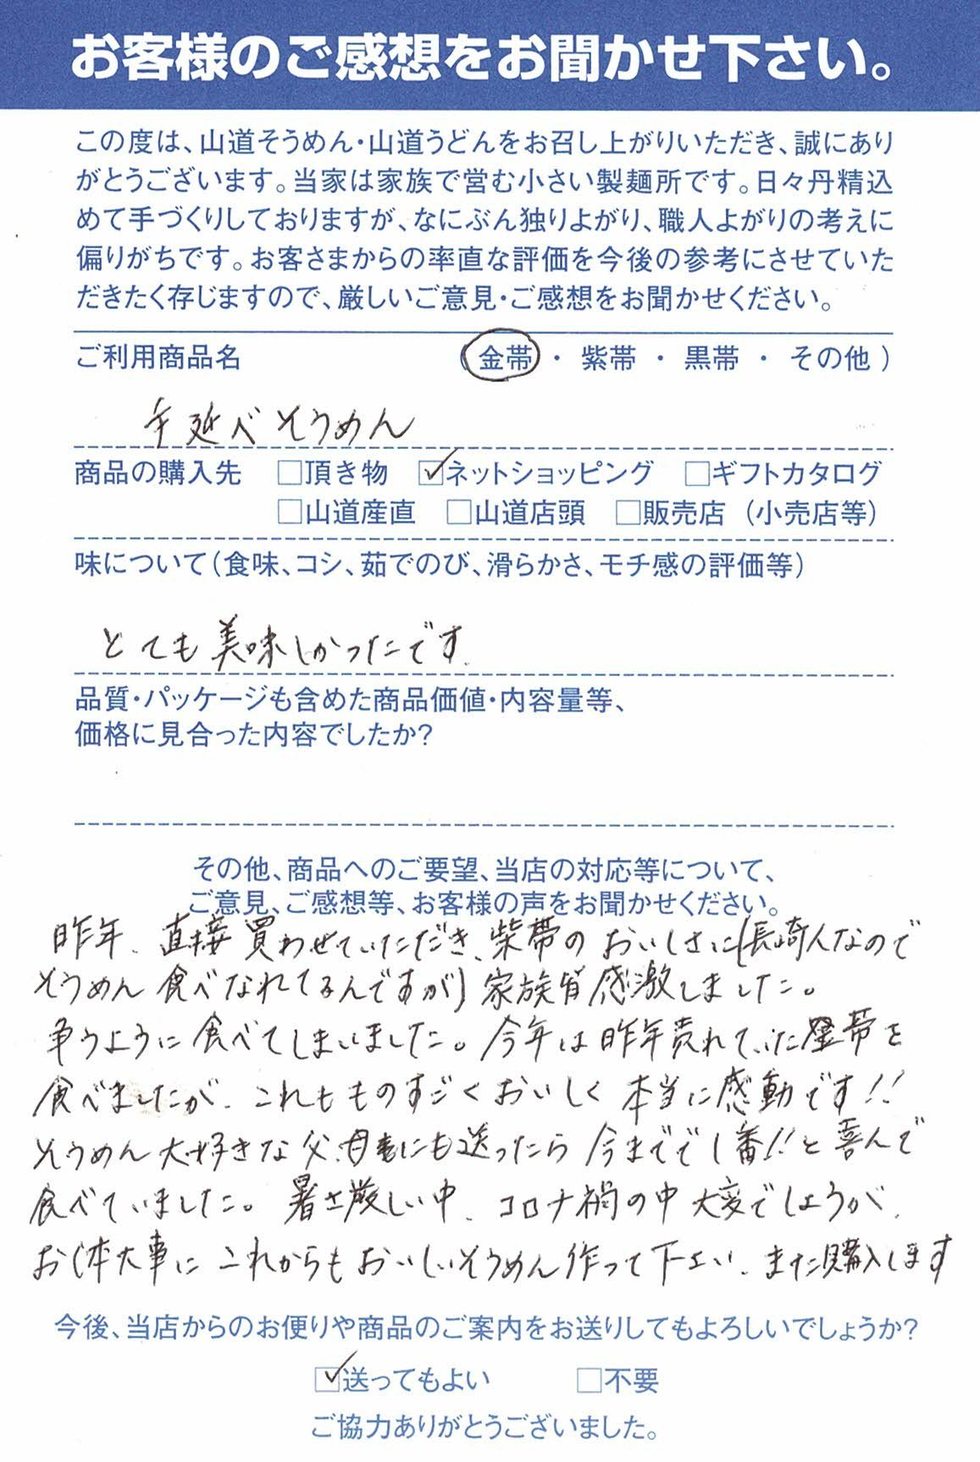 お客様のご感想をお聞かせ下さい。
この度は、山道そうめん・山道うどんをお召し上がりいただき、誠にあり
がとうございます。当家は家族で営む小さい製麺所です。日々丹精込
めて手づくりしておりますが、なにぶん独りよがり、職人よがりの考えに
偏りがちです。お客さまからの率直な評価を今後の参考にさせていた
だきたく存じますので、厳しいご意見・ご感想をお聞かせください。
ご利用商品名 (金帯 ・ 紫帯 ・ 黒帯 ・ その他 )
手延べそうめん
商品の購入先 □頂き物 ☑ネットショッピング □ギフトカタログ
□山道産直 □山道店頭 □販売店 (小売店等)
味について(食味、コシ、茹でのび、滑らかさ、モチ感の評価等)
とても美味しかったです.
品質・パッケージも含めた商品価値・内容量等、
価格に見合った内容でしたか?
その他、商品へのご要望、当店の対応等について、
ご意見、ご感想等、お客様の声をお聞かせください。
昨年、直接買わせていただき、紫帯のおいしさに(長崎人なので
そうめん食べなれてるんですが)家族皆感激しました。
争うように食べてしまいました。今年は昨年売れていた金帯を
食べましたが、これもものすごくおいしく本当に感動です!!
そうめん大好きな父、母にも送ったら今までで1番!!と喜んで
食べていました。暑さ厳しい中、コロナ禍の中大変でしょうが、
お体大事にこれからもおいしいそうめん作って下さい、また購入します
今後、当店からのお便りや商品のご案内をお送りしてもよろしいでしょうか?
☑送ってもよい □不要
ご協力ありがとうございました。